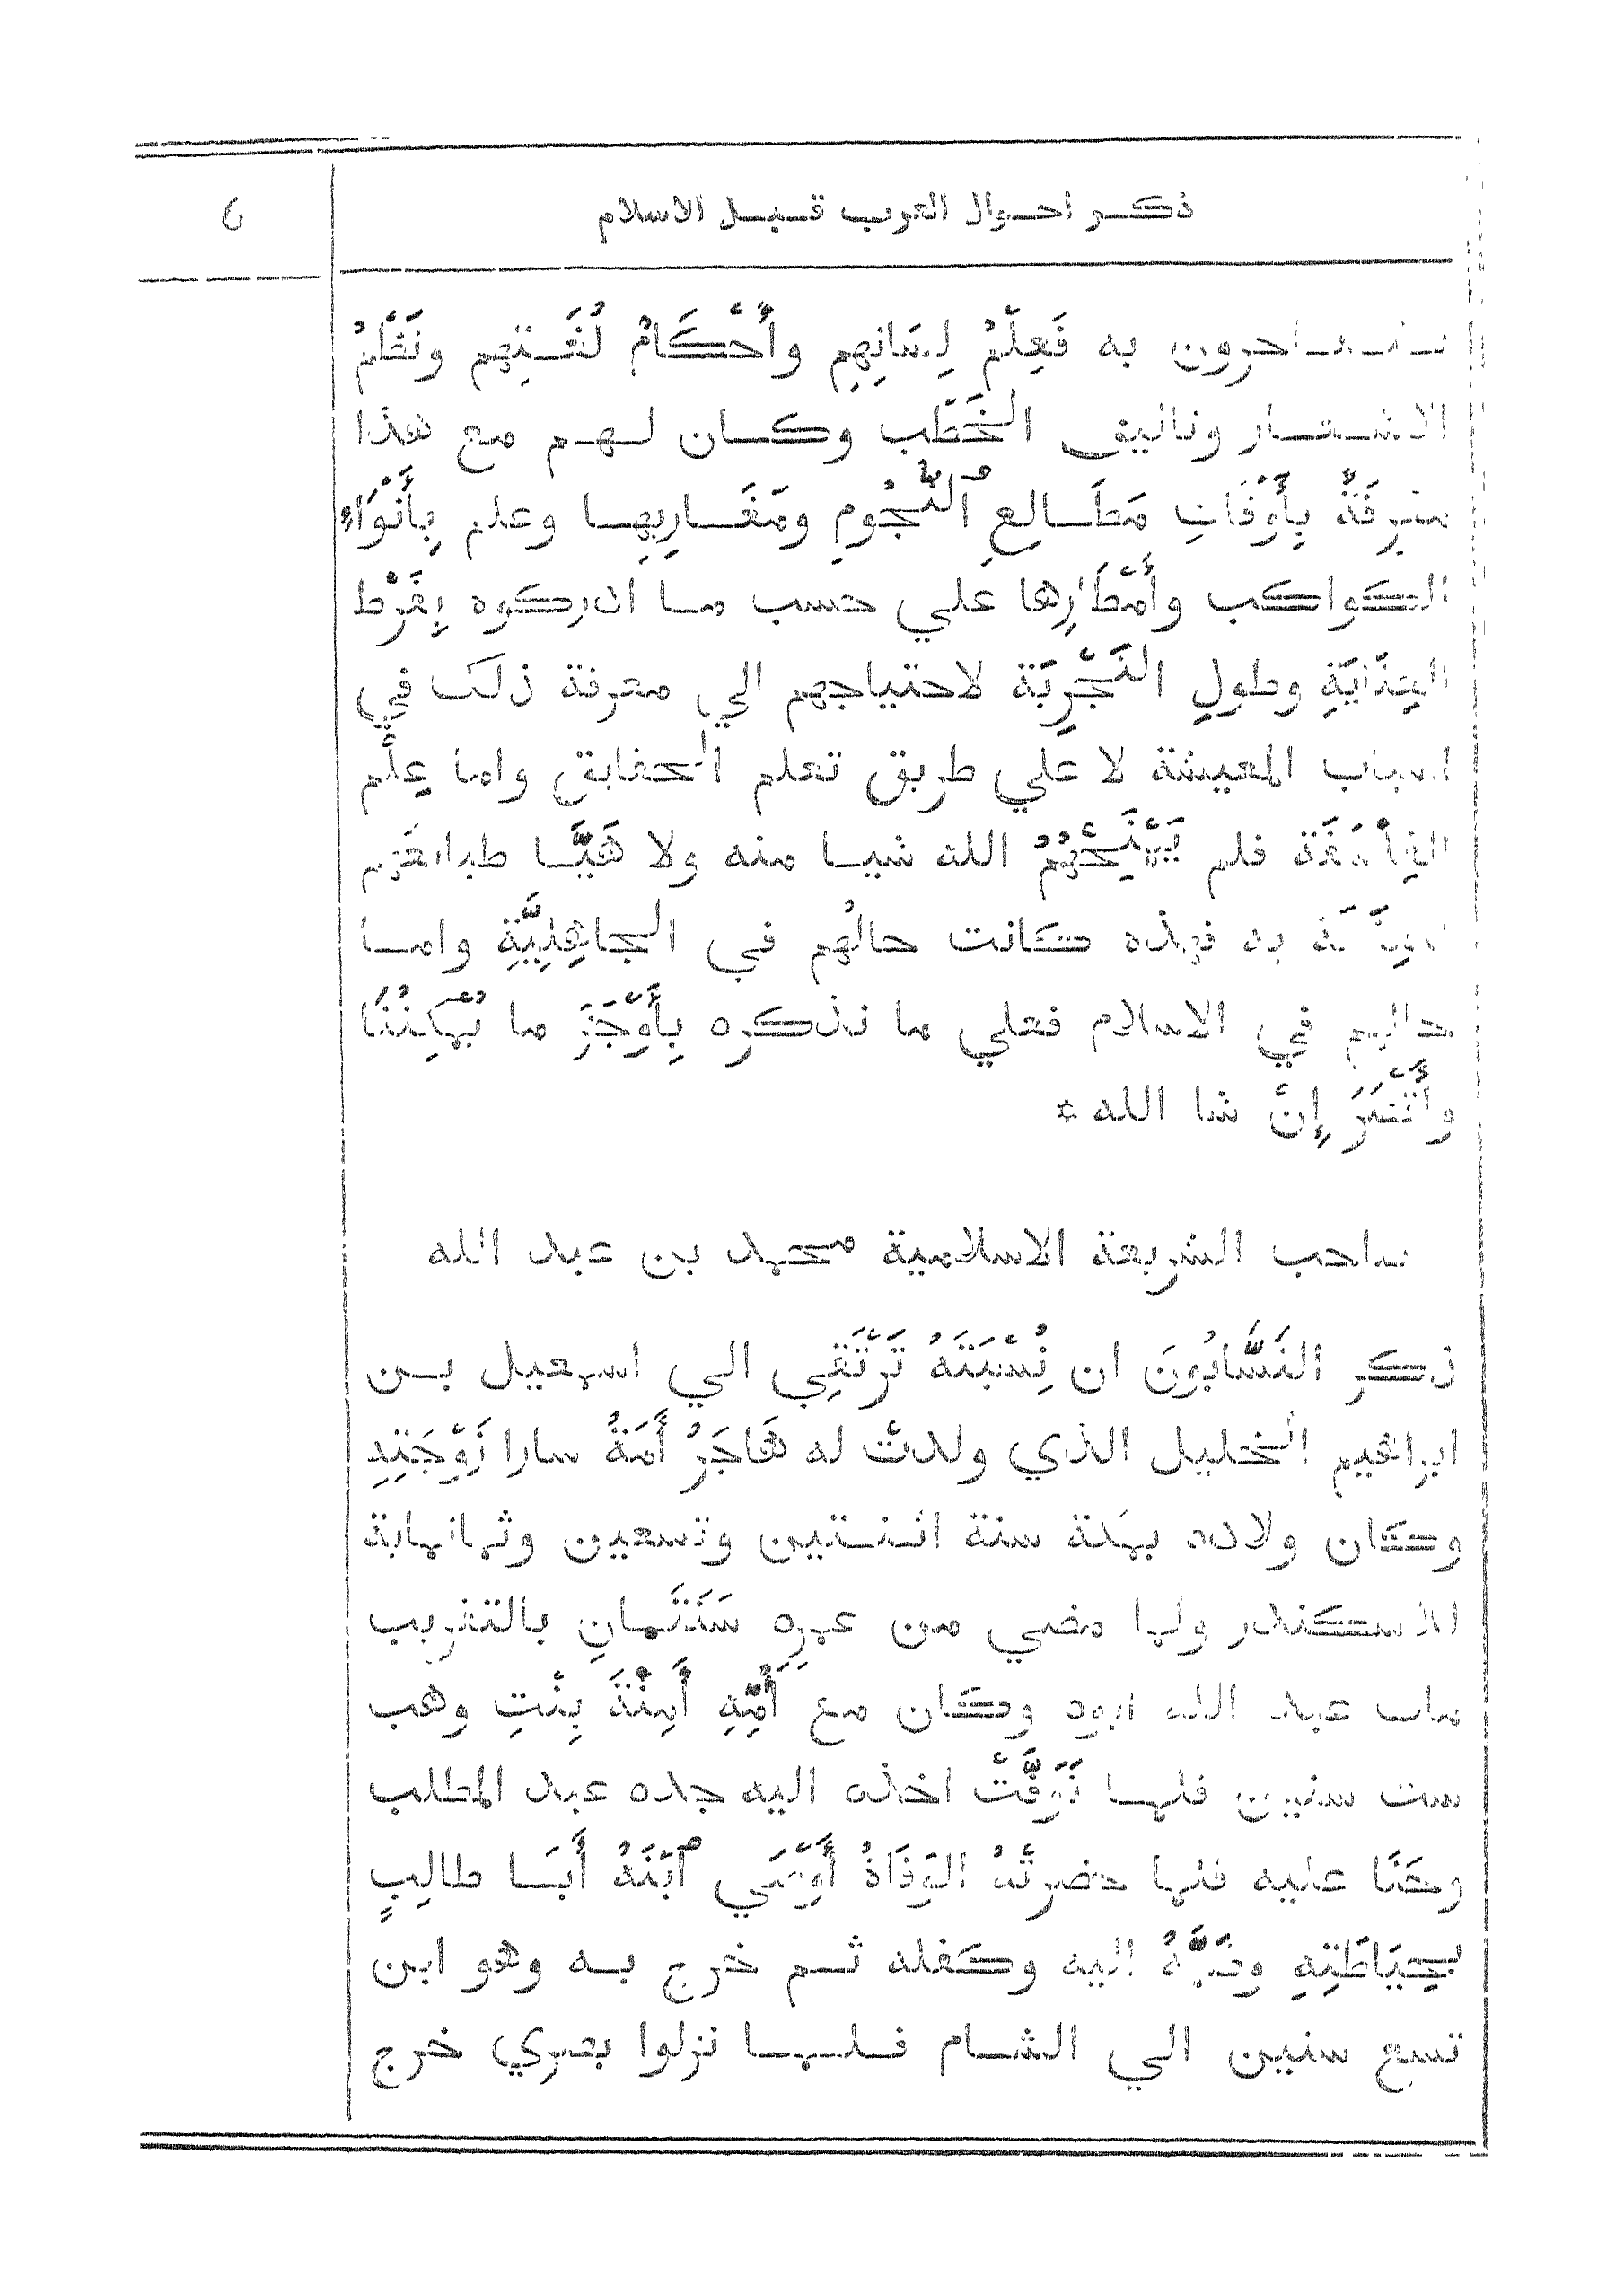 ذكر احوال العرب قبل الاسلام
يتفاخرون به فَعِلْمُ لِسَانِهِم وأَحْكَامُ لُغَتِهِم ونَظْمُ
الاشعار وتاليف الخُطَب وكان لهم مع هذا
معرفَةٌ بِأَوْقَاتِ مَطَالعِ ٱلنُّجُومِ ومَغَارِبِهِا وعلم بِأَنْوَاءِ
الكواكب وأَمْطَارِها علي حسب ما ادركوه بِفَرْط
العِنَايَةِ وطولِ التَّجْرِبَة لاحتياجهم الي معرفة ذلك في
اسباب المعيشة لا علي طريق تعلم الحقايق واما عِلْم
الفلْسَفَة فلم يَمْنَحْهُمُ الله شيا منه ولا هَيَّا طبايعَهم
العِنَايَةَ به فهذه كانت حالُهم في الجاهِلِيَّةِ واما
حالهم في الاسلام فعلي ما نذكره بِأَوْجَزِ ما يُمْكِنُنَا
وأَقْصَرَ إِنْ شا الله *
صاحب الشريعة الاسلامية محمد بن عبد الله
ذكر النَسَّابُونَ ان نِسْبَتَهُ تَرْتَقِي الي اسمعيل بن
ابراهيم الخليل الذي ولدتْ له هَاجَرُ أَمَةُ سارا زَوْجَتِهِ
وكان ولاده بمكَة سنة اثنتين وتسعين وثمانماية
للاسكندر ولما مضي من عمرِهِ سَنَتَانِ بالتقريب
مات عبد الله ابوه وكان مع أُمِّهِ أَمِنْةَ بِنْتِ وهب
ست سنين فلما تُوَفَّتْ اخذه اليه جده عبد المطلب
وحَنَا عليه فلما حضرتْهُ الوَفَاةُ أَوْصَي ٱبْنَهُ أَبَا طالِبٍ
بحِيَاطَتِهِ وضَمَّهُ اليه وكفله ثم خرج به وهو ابن
تسع سنين الي الشام فلما نزلوا بصري خرج